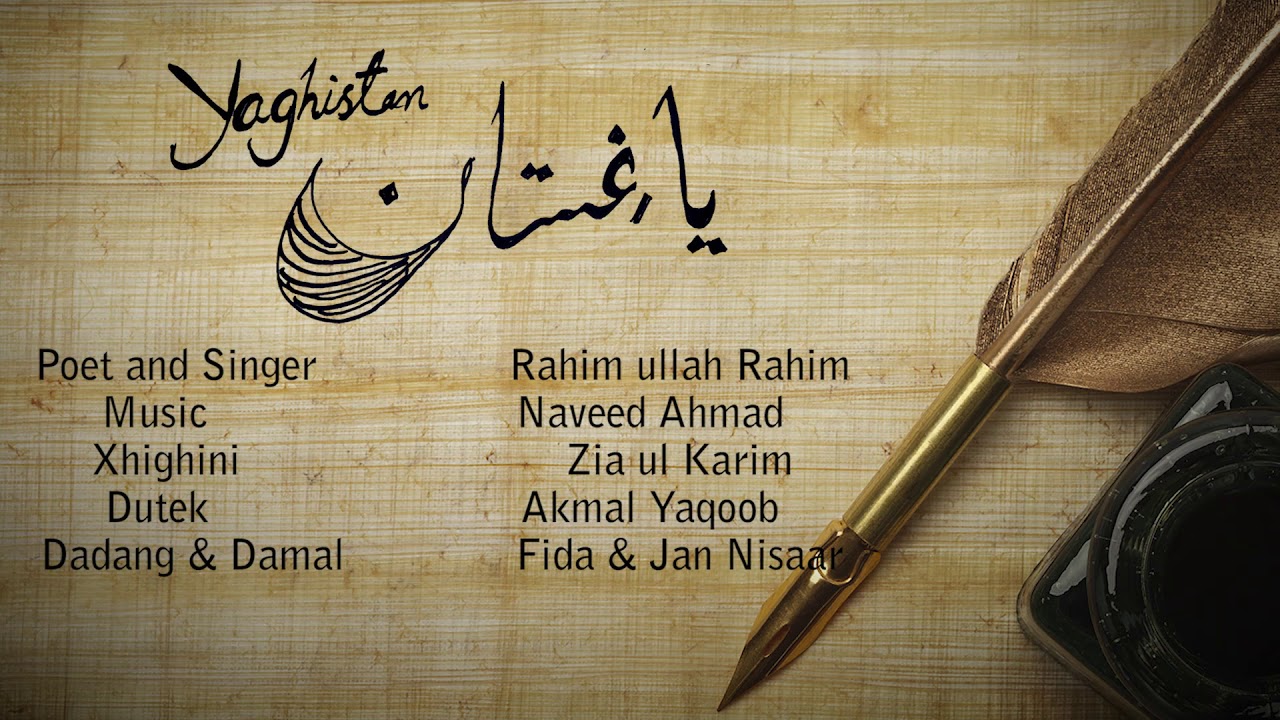 Yaghistan
یاغِستان
Poet and Singer Rahim ullah Rahim
Music Naveed Ahmad
Xhighini Zia ul Karim
Dutek Akmal Yaqoob
Dadang & Damal Fida & Jan Nisaar